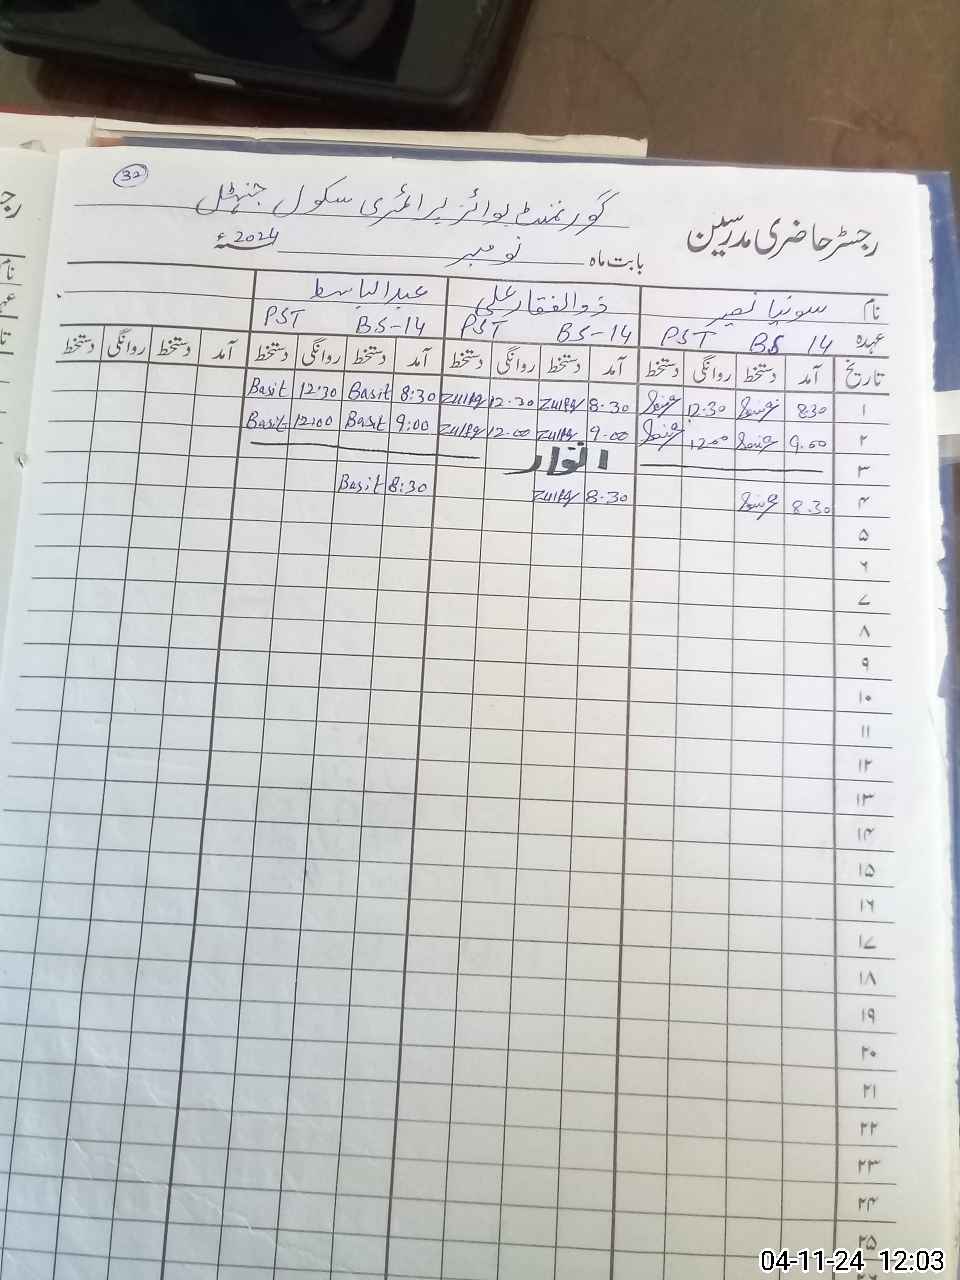 32
گورنمنٹ بوائز پرائمری سکول جنہٹل
رجسٹر حاضری مدرسین
بابت ماہ نومبر 2024ء
نام سونیا نصیر ذوالفقار علی عبدالباسط
عہدہ PST BS 14 PST BS-14 PST BS-14
تاریخ آمد دستخط روانگی دستخط آمد دستخط روانگی دستخط آمد دستخط روانگی دستخط آمد دستخط روانگی دستخط
۱ 8:30 Sonia 12.30 Sonia 8.30 Zulfq 12.30 Zulfq 8:30 Basit 12:30 Basit
۲ 9.00 Sonia 12.00 Sonia 9.00 Zulfq 12.00 Zulfq 9:00 Basit 12:00 Basit
۳ اتوار
۴ 8.30 Sonia 8.30 Zulfq 8:30 Basit
۵
۶
۷
۸
۹
۱۰
۱۱
۱۲
۱۳
۱۴
۱۵
۱۶
۱۷
۱۸
۱۹
۲۰
۲۱
۲۲
۲۳
۲۴
۲۵
04-11-24 12:03